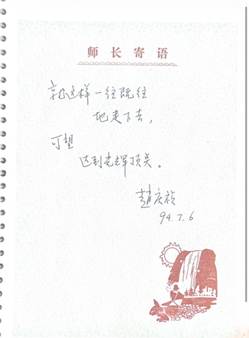 师长寄语
就这样一往既往
地走下去，
可望
达到光辉顶点。
赵庆祯
94.7.6